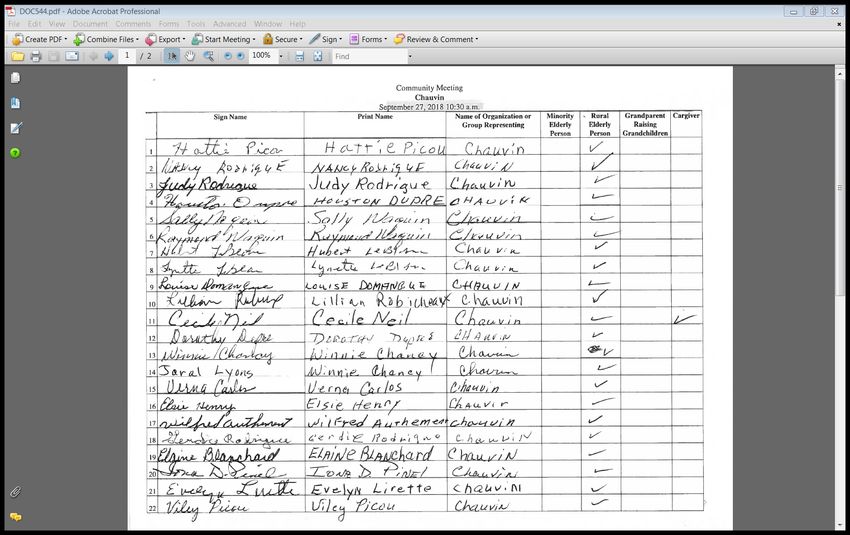 DOC544.pdf - Adobe Acrobat Professional
File Edit View Document Comments Forms Tools Advanced Window Help
Create PDF Combine Files Export Start Meeting Secure Sign Forms Review & Comment
1 / 2 100% Find
Community Meeting
Chauvin
September 27, 2018 10:30 a.m.
Sign Name Print Name Name of Organization or Group Representing Minority Elderly Person Rural Elderly Person Grandparent Raising Grandchildren Cargiver
1 Hattie Picou Hattie Picou Chauvin ✓
2 Nancy Rodrigue Nancy Rodrigue Chauvin ✓
3 Judy Rodrigue Judy Rodrigue Chauvin ✓
4 Houston Dupre HOUSTON DUPRE CHAUVIN ✓
5 Sally Sally Chauvin ✓
6 Raymond Raymond Chauvin ✓
7 Hubert Chauvin ✓
8 Lynette Chauvin ✓
9 Louise Domangue LOUISE DOMANGUE CHAUVIN ✓
10 Lillian Lillian Robicheaux Chauvin ✓
11 Cecile Neil Cecile Neil Chauvin ✓ ✓
12 Dorothy Dupre DOROTHY Dupre CHAUVIN ✓
13 Winnie Chaney Winnie Chaney Chauvin ✓
14 Jaral Lyons Winnie Chaney Chauvin ✓
15 Verna Carlos Verna Carlos Chauvin ✓
16 Elsie Henry Elsie Henry Chauvin ✓
17 Wilfred Authement Wilfred Authemen Chauvin ✓
18 Rodrigue Gerdie Rodrigue Chauvin ✓
19 Elaine Blanchard ELAINE BLANCHARD Chauvin ✓
20 Iona D. Pinel IONA D. PINEL Chauvin ✓
21 Evelyn Lirette Evelyn Lirette Chauvin ✓
22 Viley Picou Viley Picou Chauvin ✓